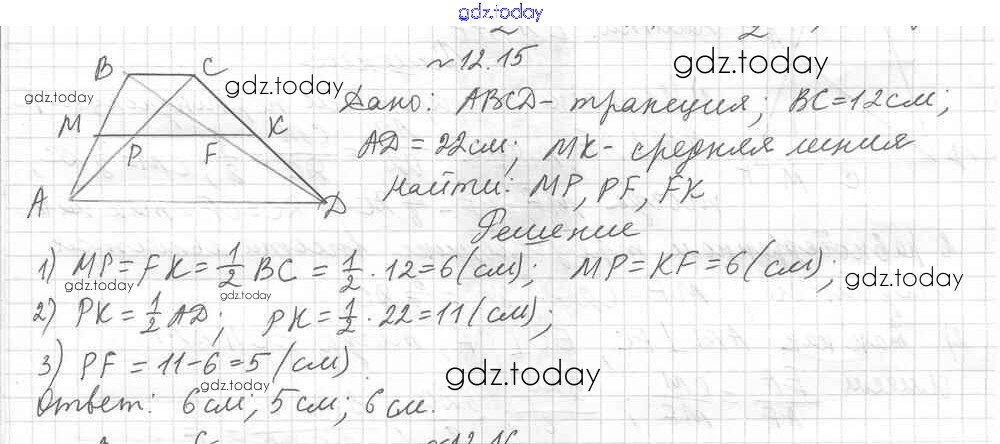 gdz.today
№12.15
B C
gdz.today
gdz.today
gdz.today
Дано: ABCD - трапеция; BC=12см;
M K
P F
AD = 22см; MK - средняя линия
A D
Найти: MP, PF, FK
Решение
1) MP = FK = 1/2 BC = 1/2 · 12 = 6 (см); MP = KF = 6 (см);
gdz.today
gdz.today
gdz.today
2) PK = 1/2 AD; PK = 1/2 · 22 = 11 (см);
3) PF = 11 - 6 = 5 (см)
gdz.today
gdz.today
Ответ: 6 см; 5 см; 6 см.
№12.16